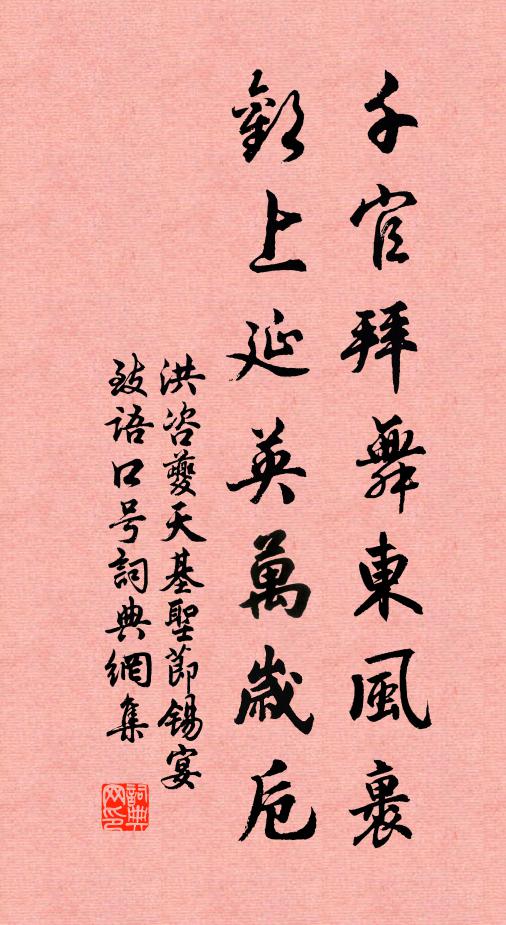 千官拜舞東風裏
勸上延英萬歲卮
洪咨夔天基聖節錫宴
致語口号詞典網集
詞典网印